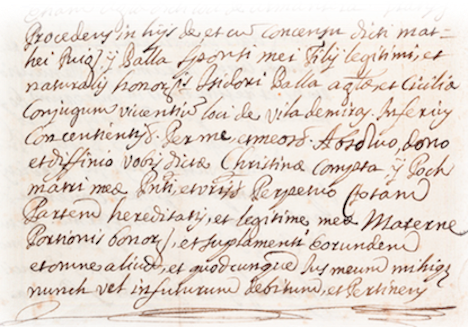 Procedens in hijs de et cu concensu dicti mat-
hei Puig, y Balla sponsi mei filij legitimi, et
naturalis honor Isidori Balla et Cicilia
Conjugum viventiu loci de viladamiras. Inferius
Concentientis. Per me, et meos. Absolvo, dono
et diffinio vobis dictæ Christinæ Compta y Poch
matri meæ Pnti, et vris Perpetuo totam
Partem hereditatis, et legitime, meæ Materne
Portionis bonor, et suplementi eorundem
et omne aliud, et quodcunque Jus meum mihiq
nunch vel in futurum debitum, et Pertinens